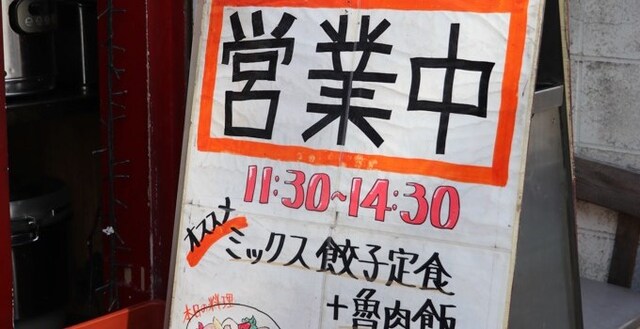 営業中
11:30~14:30
オススメ
ミックス餃子定食
+魯肉飯
本日の料理